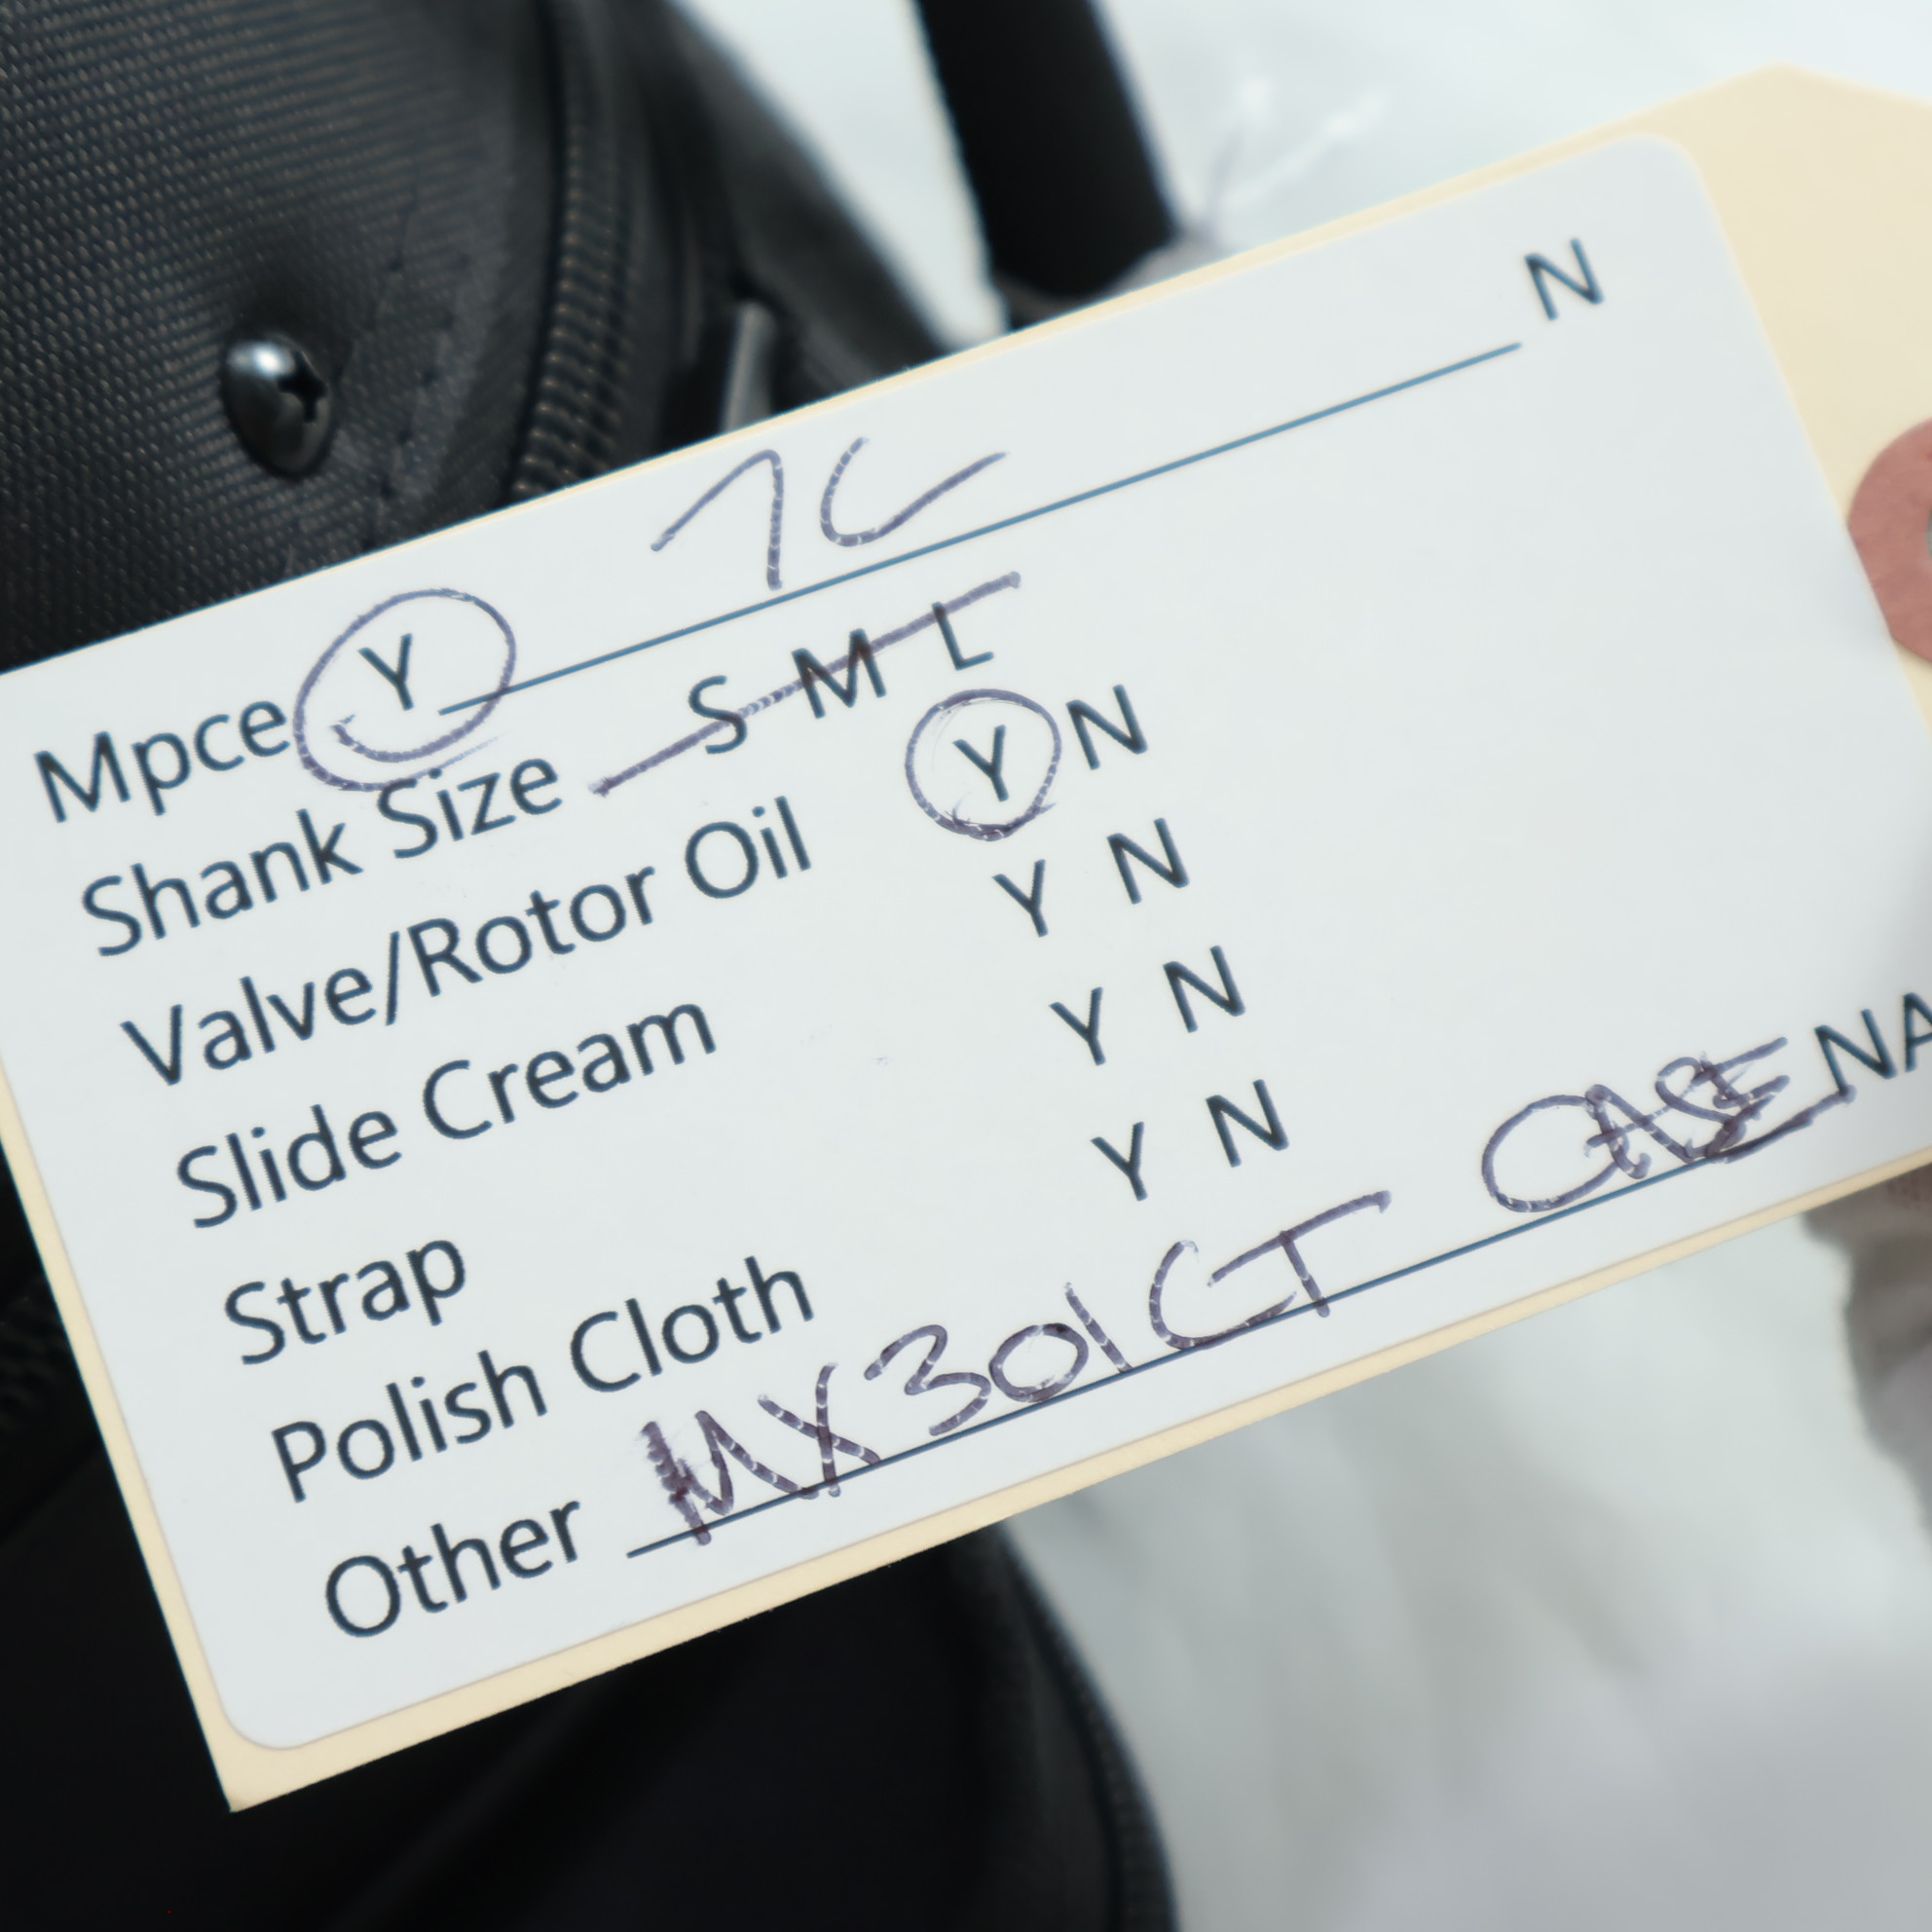 Mpce Y 7C N
Shank Size S M L
Valve/Rotor Oil Y N
Slide Cream Y N
Strap Y N
Polish Cloth Y N
Other MX301CT CASE NA